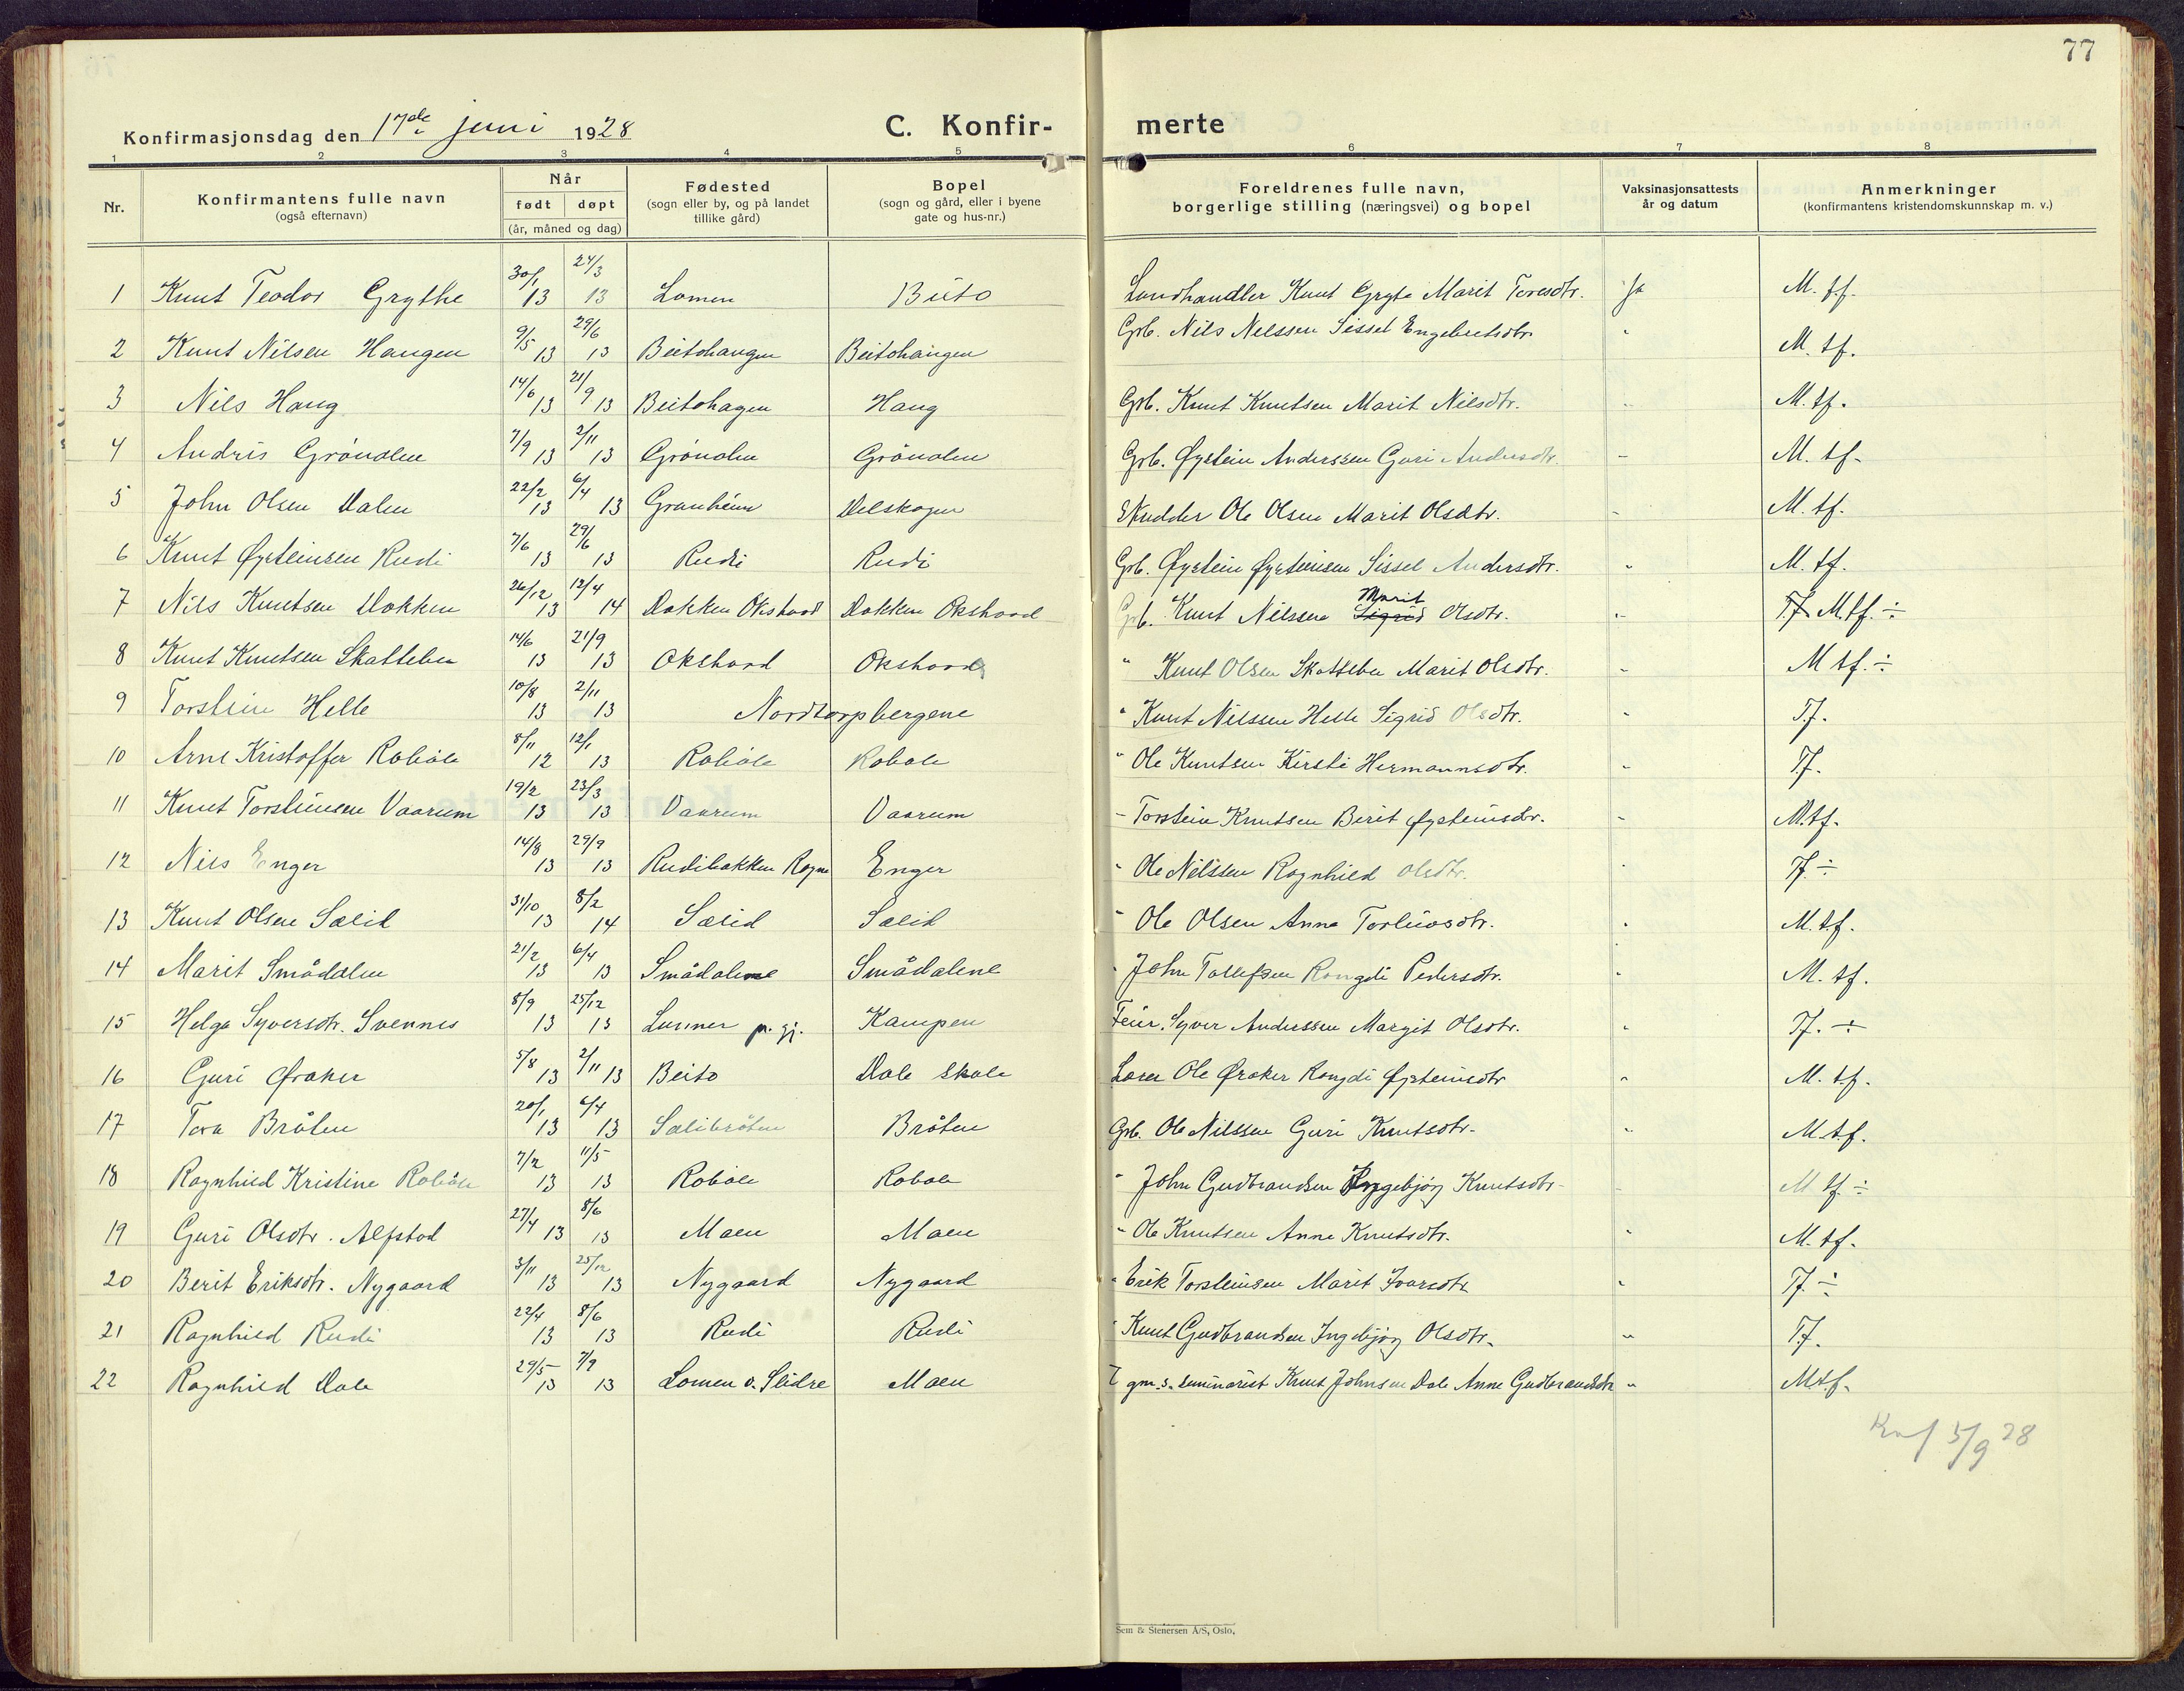 77
Konfirmasjonsdag den 17de juni 1928 C. Konfir- merte
1 2 3 4 5 6 7 8
Nr. Konfirmantens fulle navn (også efternavn) Når født døpt (år, måned og dag) Fødested (sogn eller by, og på landet tillike gård) Bopel (sogn og gård, eller i byene gate og hus-nr.) Foreldrenes fulle navn, borgerlige stilling (næringsvei) og bopel Vaksinasjonsattests år og datum Anmerkninger (konfirmantens kristendomskunnskap m. v.)
1 Knut Teodor Grythe 30/1 13 24/3 13 Lomen Beito Landhandler Knut Gryte Marit Toresdtr. Ja M. tf.
2 Knut Nilsen Haugen 9/5 13 29/6 13 Beitohaugen Beitohaugen Grb. Nils Nelssen Sissel Engebretsdtr. " M. tf.
3 Nils Haug 14/6 13 21/9 13 Beitohagen Haug Grb. Knut Knutsen Marit Nilsdtr. " M. tf.
4 Andris Grøndlen 7/9 13 2/11 13 Grøndlen Grøndlen Grb. Øystein Anderssen Guri Andersdtr. " M. tf.
5 John Olsen Dalen 22/2 13 6/4 13 Granheim Delskogen Skredder Ole Olsen Marit Olsdtr. " M. tf.
6 Knut Øysteinsen Rudi 7/6 13 29/6 13 Rudi Rudi Grb. Øystein Øysteinsen Sissel Andersdtr. " M. tf.
7 Nils Knutsen Dokken 26/12 13 12/4 14 Dokken Okshovd Dokken Okshovd Grb. Knut Nilssen Sigrid Marit Olsdtr. " T.f. M.tf. ÷
8 Knut Knutsen Skattebu 14/6 13 21/9 13 Okshovd Okshovd " Knut Olsen Skattebu Marit Olsdtr. " M tf. ÷
9 Torstein Helle 10/8 13 2/11 13 Nordtorpbergene " Knut Nilssen Helle Sigrid Olsdtr. " T.f.
10 Arne Kristoffer Robøle 8/11 12 12/1 13 Robøle Robøle " Ole Knutsen Kirsti Hermannsdtr. " Tf.
11 Knut Torsteinsen Vaarum 19/2 13 23/3 13 Vaarum Vaarum " Torstein Knutsen Berit Øysteinsdtr. " M.tf.
12 Nils Enger 14/8 13 29/9 13 Rudibakken Rogne Enger " Ole Nilssen Ragnhild Olsdtr. " Tf. ÷
13 Knut Olsen Sælid 31/10 13 8/2 14 Sælid Sælid " Ole Olsen Anne Torleivsdtr. " M. tf.
14 Marit Smådalen 21/2 13 6/4 13 Smådalene Smådalene " John Tollefsen Rangdi Pedersdtr. " M. tf.
15 Helga Syversdtr. Svennes 8/9 13 25/12 13 Lunner p. gj. Kampen Feier. Syver Anderssen Margit Olsdtr. " Tf. ÷
16 Guri Øraker 5/8 13 2/11 13 Beito Dale skole Lærer Ole Øraker Rangdi Øysteinsdtr " M. tf.
17 Tora Bråten 20/1 13 6/4 13 Sælibråten Bråten Grb. Ole Nilssen Guri Knutsdtr. " M. tf.
18 Ragnhild Kristine Robøle 7/2 13 11/5 13 Robøle Robøle " John Gudbrandsen Ingebjørg Knutsdtr. M tf ÷
19 Guri Olsdtr. Alfstad 27/4 13 8/6 13 Moen Moen " Ole Knutsen Anne Knutsdtr. " M. tf.
20 Berit Eriksdtr. Nygaard 3/11 13 25/12 13 Nygaard Nygaard " Erik Torsteinsen Marit Ivarsdtr " Tf. ÷
21 Ragnhild Rudi 22/4 13 8/6 13 Rudi Rudi " Knut Gudbrandsen Ingebjørg Olsdtr. " T.f.
22 Ragnhild Dale 29/5 13 7/9 13 Lomen v. Slidre Moen gm. s. seminarist Knut Johnsen Dale Anne Gudbrandsdtr " M.tf.
5/9 28
Sem & Stenersen A/S, Oslo.